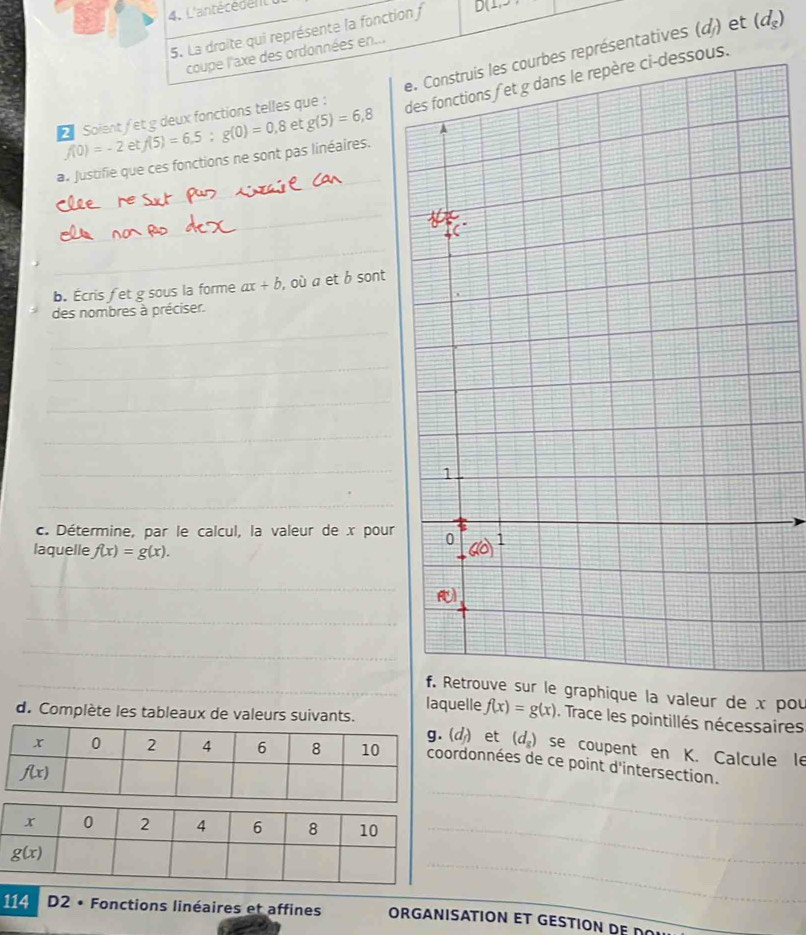 4. L'antécédent
5. La droite qui représente la fonction f
coupe l'axe des ordonnées en...
2 Soient f et g deux fonctions telles que :
f(0) = - 2 et f(5) = 6,5 ; g(0) = 0,8 et g(5) = 6,8
a. Justifie que ces fonctions ne sont pas linéaires.
non
b. Écris f et g sous la forme ax + b, où a et b sont
des nombres à préciser.
c. Détermine, par le calcul, la valeur de x pour
laquelle f(x) = g(x).
d. Complète les tableaux de valeurs suivants.
x 0 2 4 6 8 10
f(x)
x 0 2 4 6 8 10
g(x)
e. Construis les courbes représentatives (df) et (dg)
des fonctions f et g dans le repère ci-dessous.
1
0 1
G(0)
f. Retrouve sur le graphique la valeur de x pou
laquelle f(x) = g(x). Trace les pointillés nécessaires
g. (df) et (dg) se coupent en K. Calcule le
coordonnées de ce point d'intersection.
114 D2 • Fonctions linéaires et affines
ORGANISATION ET GESTION DE